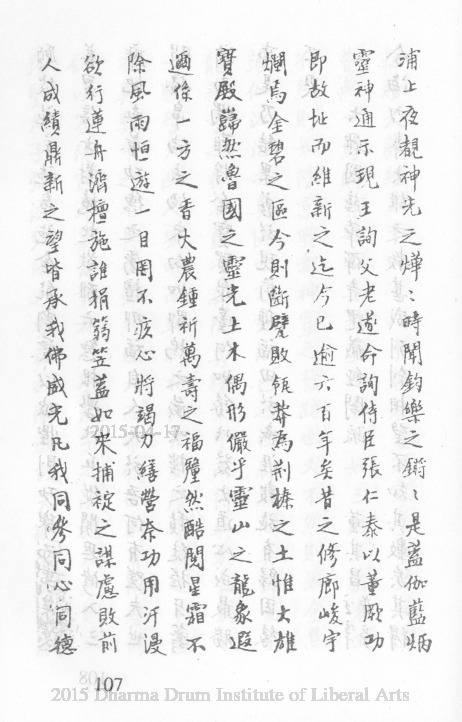 浦上夜覩神光之燁〻時聞鈞樂之鏘〻是蓋伽藍炳
靈神通示現王詢父老遂命詢侍臣張仁泰以董厥功
即故址而維新之迄今已逾六百年矣昔之修廊峻宇
爛焉金碧之區今則斷甓敗瓴莽為荊榛之土惟大雄
寶殿巋然魯國之靈光土木偶形儼乎靈山之龍象遐
邇係一方之香火農鍾祈萬壽之福釐然酷閱星霜不
除風雨恒遊一日罔不疚心將竭力繕營奈功用汗漫
欲行運舟濟檀施誰捐蒻笠蓋如宋捕椗之謀處敗前
人成績鼎新之望皆承我佛威光凡我同參同心同德
107
2015-04-17
2015 Dharma Drum Institute of Liberal Arts